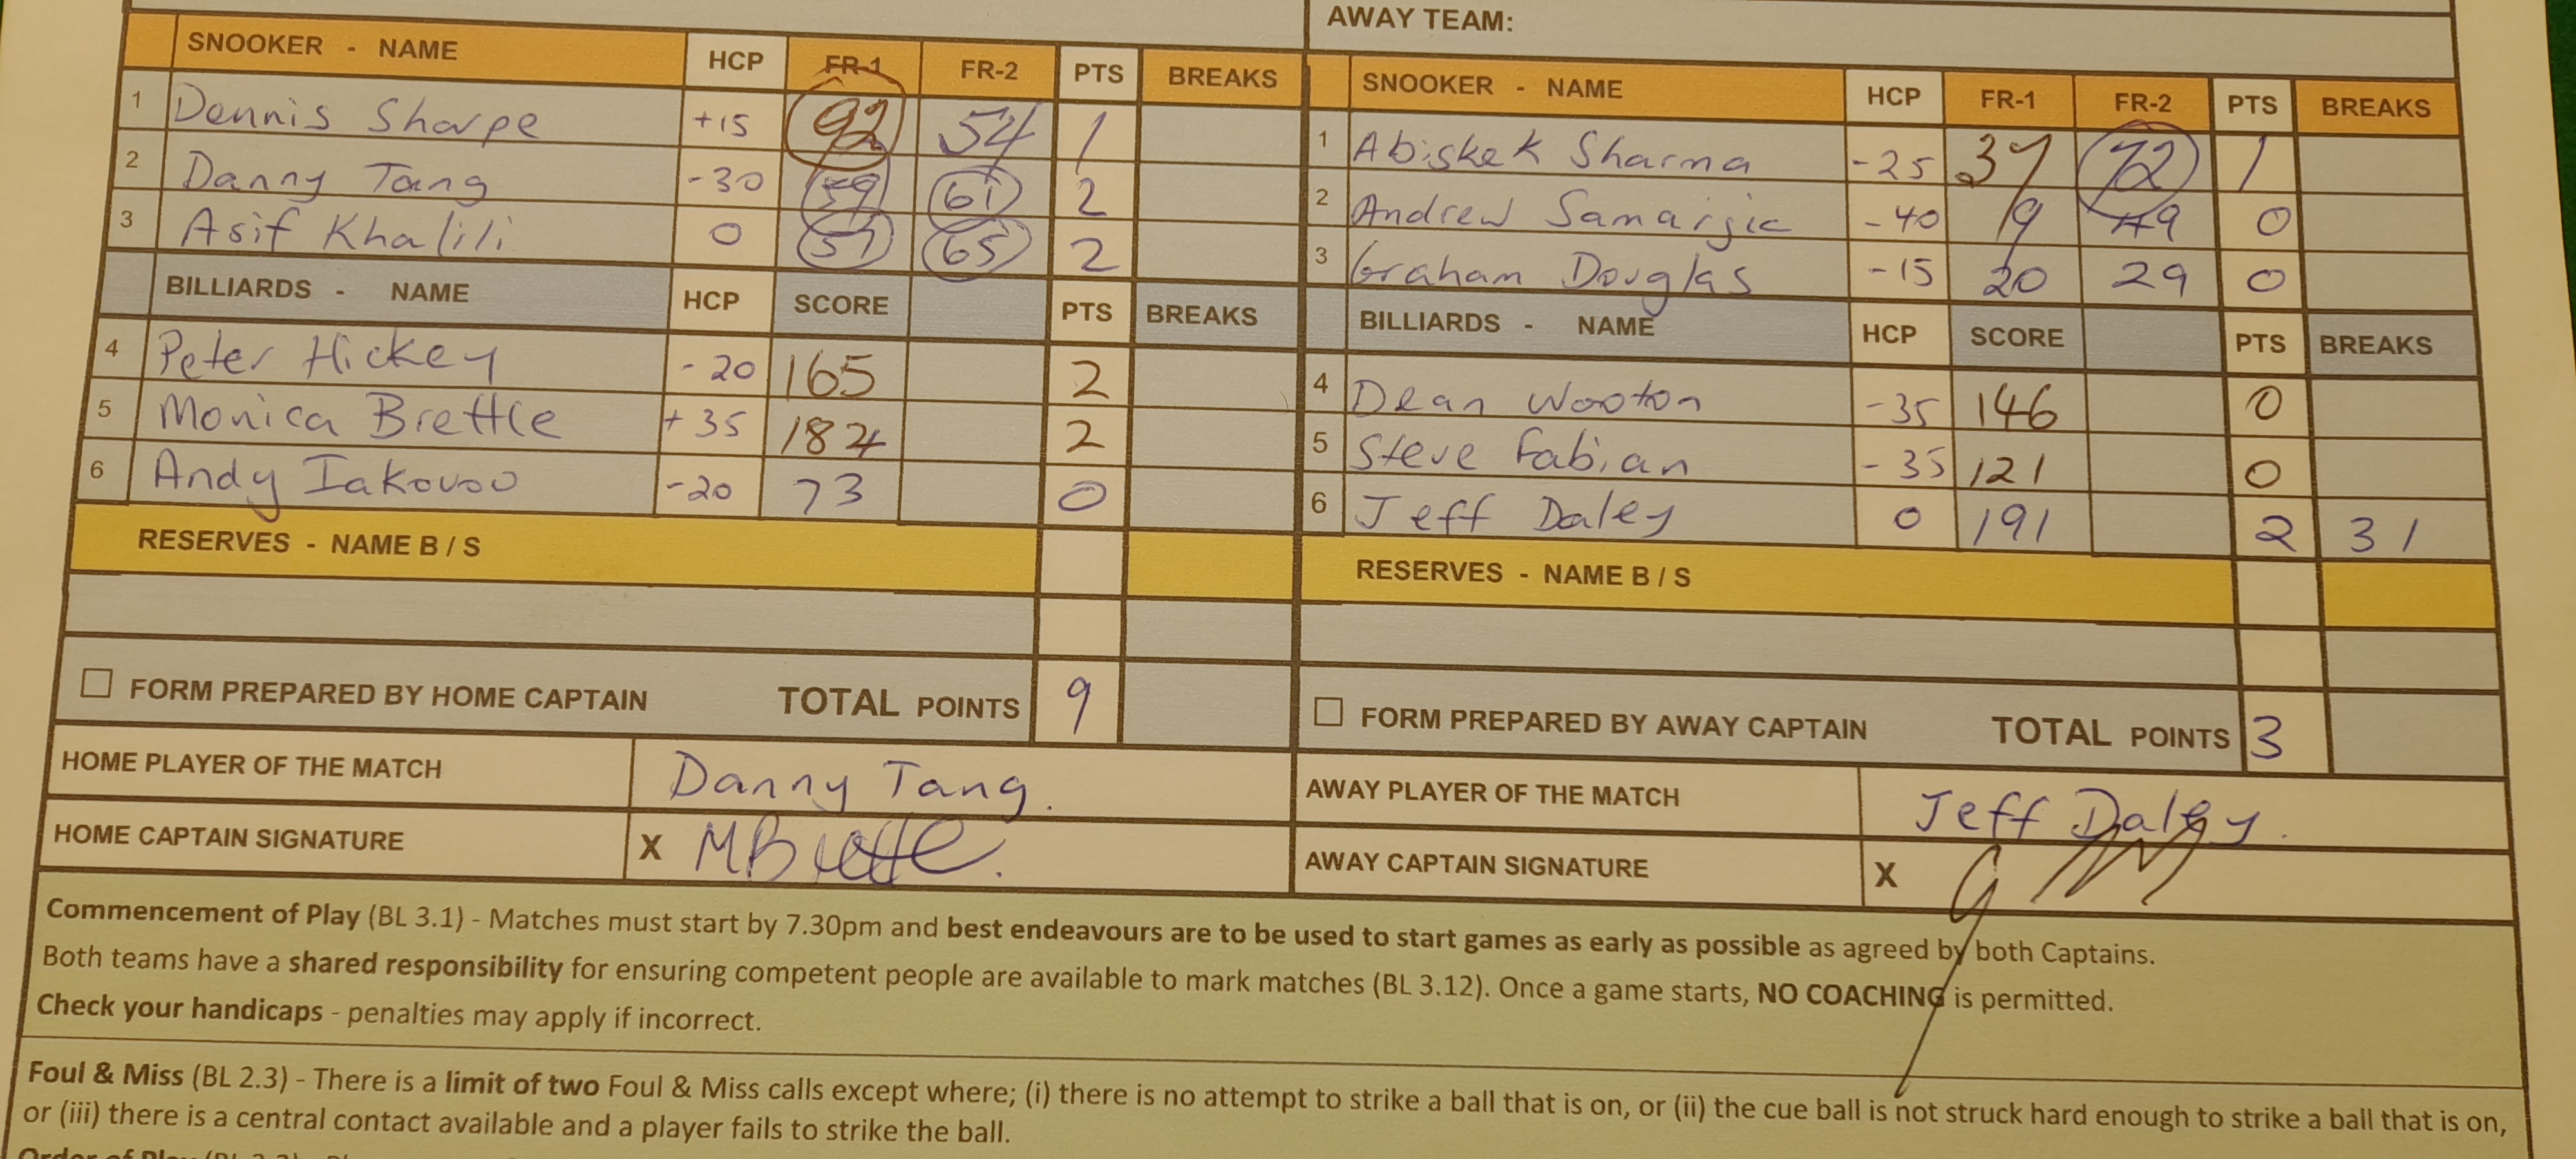 AWAY TEAM:
SNOOKER - NAME HCP FR-1 FR-2 PTS BREAKS
1 Dennis Sharpe +15 92 54 1
2 Danny Tang -30 59 61 2
3 Asif Khalili 0 57 65 2
BILLIARDS - NAME HCP SCORE PTS BREAKS
4 Peter Hickey -20 165 2
5 Monica Brettle +35 184 2
6 Andy Iakovoo -20 73 0
RESERVES - NAME B / S
FORM PREPARED BY HOME CAPTAIN TOTAL POINTS 9
HOME PLAYER OF THE MATCH Danny Tang.
HOME CAPTAIN SIGNATURE X MBrettle.
SNOOKER - NAME HCP FR-1 FR-2 PTS BREAKS
1 Abiskek Sharma -25 37 72 1
2 Andrew Samarjic -40 19 49 0
3 Graham Douglas -15 20 29 0
BILLIARDS - NAME HCP SCORE PTS BREAKS
4 Dean Wooton -35 146 0
5 Steve Fabian -35 121 0
6 Jeff Daley 0 191 2 31
RESERVES - NAME B / S
FORM PREPARED BY AWAY CAPTAIN TOTAL POINTS 3
AWAY PLAYER OF THE MATCH Jeff Daley.
AWAY CAPTAIN SIGNATURE X
Commencement of Play (BL 3.1) - Matches must start by 7.30pm and best endeavours are to be used to start games as early as possible as agreed by both Captains.
Both teams have a shared responsibility for ensuring competent people are available to mark matches (BL 3.12). Once a game starts, NO COACHING is permitted.
Check your handicaps - penalties may apply if incorrect.
Foul & Miss (BL 2.3) - There is a limit of two Foul & Miss calls except where; (i) there is no attempt to strike a ball that is on, or (ii) the cue ball is not struck hard enough to strike a ball that is on,
or (iii) there is a central contact available and a player fails to strike the ball.